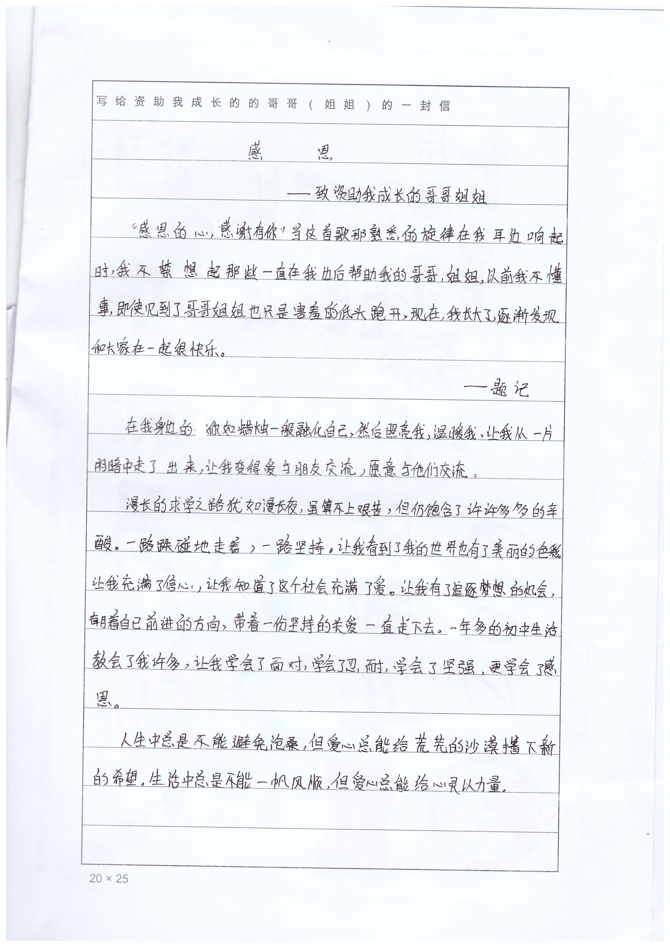 写给资助我成长的的哥哥（姐姐）的一封信
感 恩
——致资助我成长的哥哥姐姐
“感恩的心，感谢有你”当这首歌那熟悉的旋律在我耳边响起
时，我不禁想起那些一直在我边后帮助我的哥哥，姐姐，以前我不懂
事，即使见到了哥哥姐姐也只是害羞的低头跑开，现在，我长大了，逐渐发现
和大家在一起很快乐。
——题记
在我身边的：犹如蜡烛一般融化自己，然后照亮我，温暖我、让我从一片
阴暗中走了出来，让我变得爱与朋友交流，愿意与他们交流。
漫长的求学之路犹如漫长夜，虽算不上艰苦，但仍饱含了许许多多的辛
酸。一路跌碰地走着，一路坚持。让我看到了我的世界也有了美丽的色彩，
让我充满了信心，让我知道了这个社会充满了爱。让我有了追逐梦想的机会，
朝着自己前进的方向，带着一份坚持的关爱一直走下去。一年多的初中生活
教会了我许多，让我学会了面对，学会了忍耐，学会了坚强，更学会了感
恩。
人生中总是不能避免沧桑，但爱心总能给荒芜的沙漠播下新
的希望。生活中总是不能一帆风顺，但爱心总能给心灵以力量。
20×25